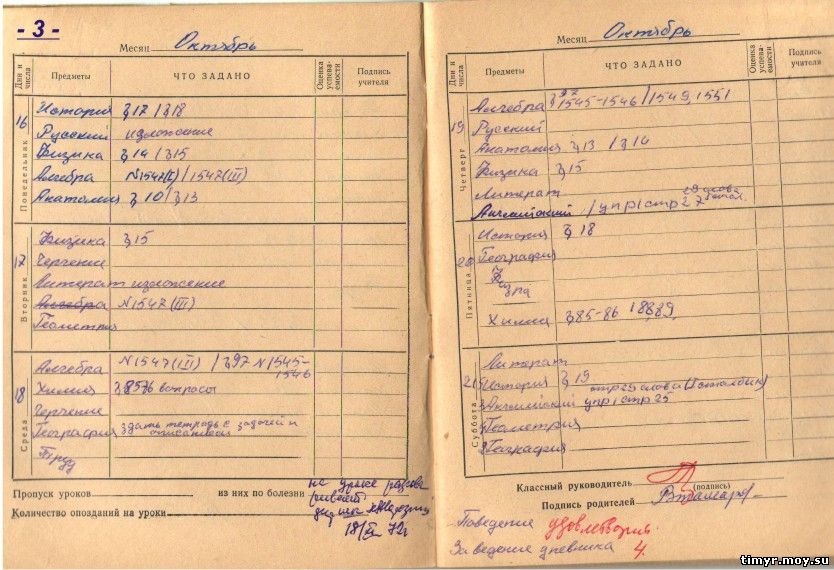 - 3 -
Месяц Октябрь
Дни и числа
Предметы
ЧТО ЗАДАНО
Оценка успева-емости
Подпись учителя
16
Понедельник
История § 17 / § 18
Русский изложение
Физика § 14 / § 15
Алгебра N1547(II) / 1547(III)
Анатомия § 10 / § 13
17
Вторник
Физика § 15
Черчение
Литерат изложение
Алгебра N1547 (III)
Геометрия
18
Среда
Алгебра N1547(III) / § 97 N1545-1546
Химия вопросы
Черчение
География сдать тетрадь с задачей и
Труд
Пропуск уроков из них по болезни
Количество опозданий на уроки
на уроке
Месяц Октябрь
Дни и числа
Предметы
ЧТО ЗАДАНО
Оценка успева-емости
Подпись учителя
19
Четверг
Алгебра § 97 1545-1546 / 1549, 1551
Русский
Анатомия § 13 / § 14
Физика § 15
Литерат
Английский / упр1стр27
20
Пятница
История § 18
География
Физра
Химия § 85-86
21
Суббота
Литерат
История § 19
стр29 слова
Английский упр1стр25
Геометрия
География
Классный руководитель
(подпись)
Подпись родителей
Поведение удовлетворит.
За ведение дневника 4.
timyr.moy.su